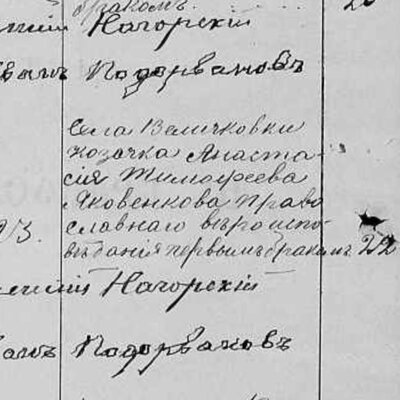 бракомъ
Нагорскій
Подорвановъ
Села Величковки
козачка Анаста-
сія Тимофеева
Яковенкова Право
славнаго вѣроиспо-
вѣданія первымъ бракомъ 22
Нагорскій
Подорвановъ